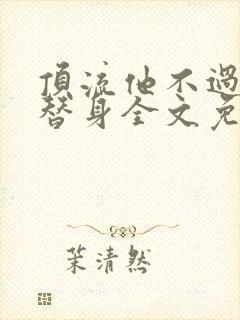 頂流他不過
替身全文免
茉清然